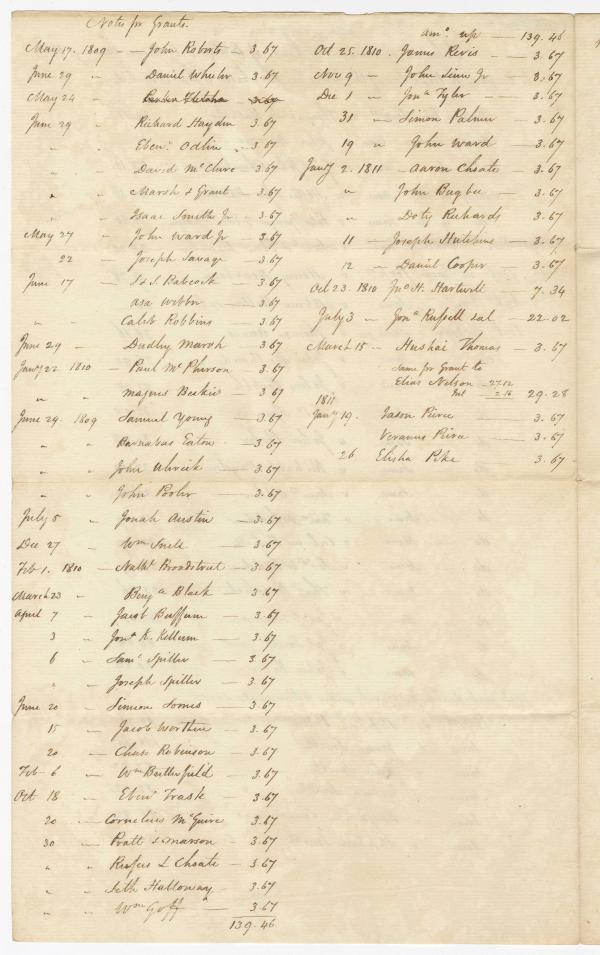 Notes for Grants.
May 17. 1809 — John Roberts — 3.67
June 29 " Daniel Wheeler 3.67
May 24 — 3.67
June 29 " Richard Hayden 3.67
" " Eben. Odlin . 3.67
" David McClure — 3.67
" Marsh & Grant — 3.67
" Isaac Smith Jr — 3.67
May 27 — John Ward Jr — 3.67
22 — Joseph Savage — 3.67
June 17 — J & S Babcock — 3.67
Asa Webber — 3.67
" " Caleb Robbins — 3.67
June 29 — Dudley Marsh — 3.67
Jany 22 1810 — Paul McPherson — 3.67
" " Magnus — 3.67
June 29. 1809 Samuel Young — 3.67
" " Barnabas Eaton — 3.67
" " John — 3.67
" " John Poohr — 3.67
July 5 " Jonah Austin — 3.67
Dec 27 — Wm Snell — 3.67
Feb 1. 1810 — Nathl Broadstreet — 3.67
March 23 " Benja Black — 3.67
April 7 " Jacob Buffum — 3.67
3 " Jona K. Kellum — 3.67
6 — Saml Spiller — 3.67
" Joseph Spiller — 3.67
June 20 — Simeon Soones — 3.67
15 — Jacob Worthen — 3.67
20 — Chase Robinson — 3.67
Feb 6 — Wm Butterfield — 3.67
Oct 18 — Ebenr Trask — 3.67
20 — Cornelius McGuire — 3.67
30 — Pratt & Marson — 3.67
" " Rufus L Choate — 3.67
" " Seth Halloway — 3.67
" " Wm Goff — 3.67
139.46
amo. up — 139.46
Oct 25. 1810. James Revis — 3.67
Nov 9 — John Jr — 3.67
Dec 1 " Jona Tyler — 3.67
31 — Simon Palmer — 3.67
19 " John Ward — 3.67
Jany 2. 1811 — Aaron Choate — 3.67
" John Bugbee — 3.67
" Doty Richards 3.67
11 — Joseph Hutchins — 3.67
12 — Daniel Cooper — 3.67
Oct 23. 1810 Jno H. Hartwell — 7.34
July 3 — Jona Russell bal — 22.02
March 15 — Hushai Thomas — 3.67
Same for Grant to
Elias Nelson 27.12
Int 2.16 29.28
1811
Jany 19. Jason Peirce — 3.67
Veranus Peirce — 3.67
26 Elisha Pike — 3.67